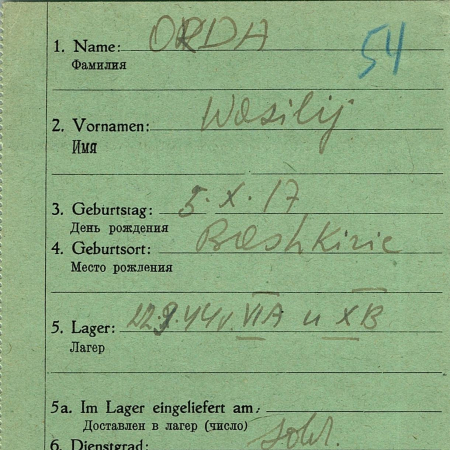 1. Name: ORDA
54
Фамилия
2. Vornamen: Wasilij
Имя
3. Geburtstag: 5. X. 17
День рождения
4. Geburtsort: Bashkirie
Место рождения
5. Lager: 22.9.44 v. VI A и X B
Лагер
5a. Im Lager eingeliefert am:
Доставлен в лагер (число)
6. Dienstgrad: Sold.